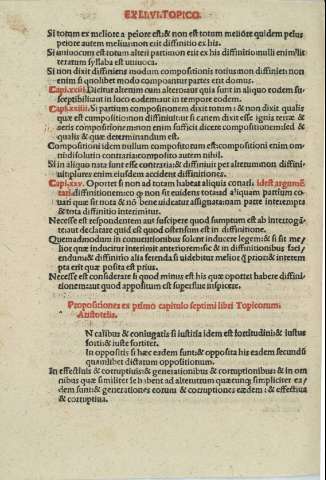 EX LI.VI.TOPICO.
Si totum ex meliore a peiore est:& non est totum meliore quidem peius
peiore autem melius:non erit diffinitio ex his.
Si uniuocum est totum alteri partium non erit ex his diffinitio:nulli enim litteratum syllaba est uniuoca.
Si non dixit diffiniens modum compositionis totius:non diffiniet:non
enim si quolibet modo componantur partes erit domus.
Capi.xxiii. Dicitur alterum cum altero:aut quia sunt in aliquo eodem su-
sceptibili:aut in loco eodem:aut in tempore eodem.
Capi.xxiiii. Si partium compositionem dixit totum : & non dixit qualis
quæ est compositio:non diffiniuit:ut si carnem dixit esse ignis terræ &
aeris compositionem:non enim sufficit dicere compositionem:sed &
qualis & quæ determinandum est.
Compositioni idem nullum compositorum est:compositioni enim om-
ni:dissolutio contraria:composito autem nihil.
Si in aliquo nata sunt esse contraria:& diffiniuit per alterum:non diffini-
uit:plures enim eiusdem accident diffinitiones.
Capi.xxv. Oportet si non ad totam habeat aliquis conari: idest argumē
tari:diffinitionem:eo quod non sit euidens tota:ad aliquam partium co-
nari quæ sit nota & nō bene uideatur assignata:nam parte interempta
& tota diffinitio interimitur.
Necesse est respondentem aut suscipere quod sumptum est ab interrogā-
te:aut declarare quid est quod ostensum est in diffinitione.
Quemadmodum in conuentionibus solent inducere legem:& si sit me-
lior quæ inducitur interimit anteriorem:sic & in diffinitionibus faci-
endum:& diffinitio alia ferenda:si uidebitur melior priori:& interem
pta erit quæ posita est prius.
Necesse est considerate si quod minus est his quæ oportet habere diffini-
tionem:aut quod appositum est superflue inspicere.
Propositiones ex primo capitulo septimi libri Topicorum
Aristotelis.
N calibus & coniugatis si iustitia idem est fortitudini:& iustus
forti:& iuste fortiter.
In oppositis si hæc eadem sunt:& opposita his eadem secundū
quamlibet dictarum oppositionum.
In effectiuis & corruptiuis:& generationibus & corruptionibus:& in om
nibus quæ similiter se habent ad alterutrum:quæcunque simpliciter ea/
dem sunt:& generationes eorum & corruptiones eædem: & effectiua
& corruptiua.